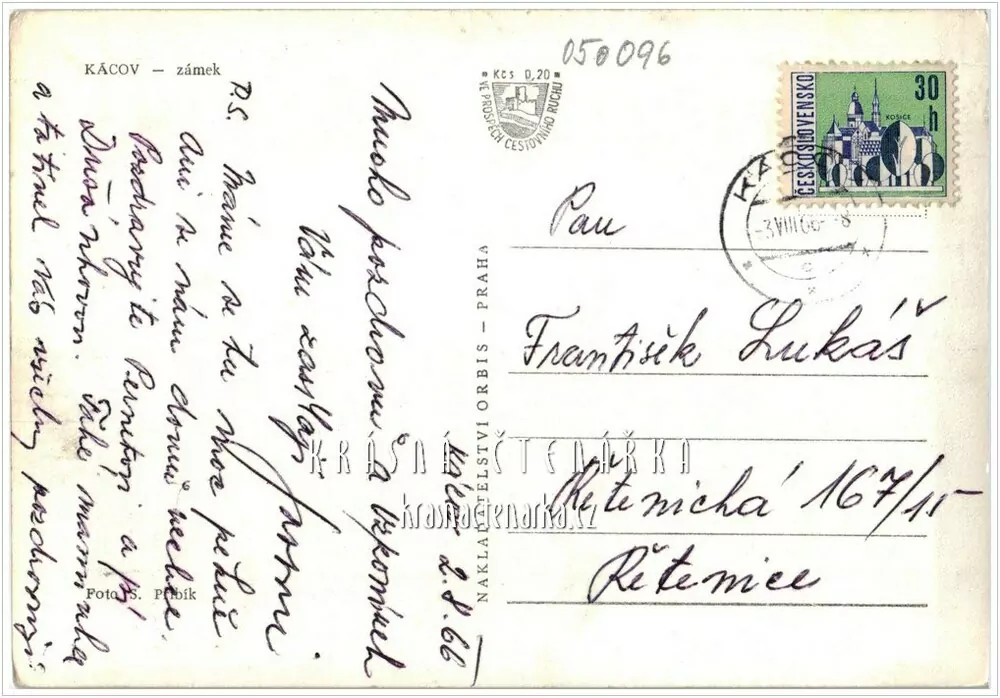 KÁCOV – zámek
Kčs 0,20
VE PROSPĚCH CESTOVNÍHO RUCHU
050096
ČESKOSLOVENSKO
30 h
KOŠICE
KÁCOV
-3.VIII.66--8
c
Kácov 2.8.66
Mnoho pozdravů a vzpomínek
Vám zasílají
P.S. Máme se tu moc pěkně
Ani se nám domů nechce.
Pozdravujte a pí
Také maminka
a tatínek Vás všichni pozdravují
Foto S. Přibík
NAKLADATELSTVÍ ORBIS – PRAHA
Pan
František Lukáš
Řetenická 167/15
Řetenice
KRÁSNÁ ČTENÁŘKA
krasnactenarka.cz